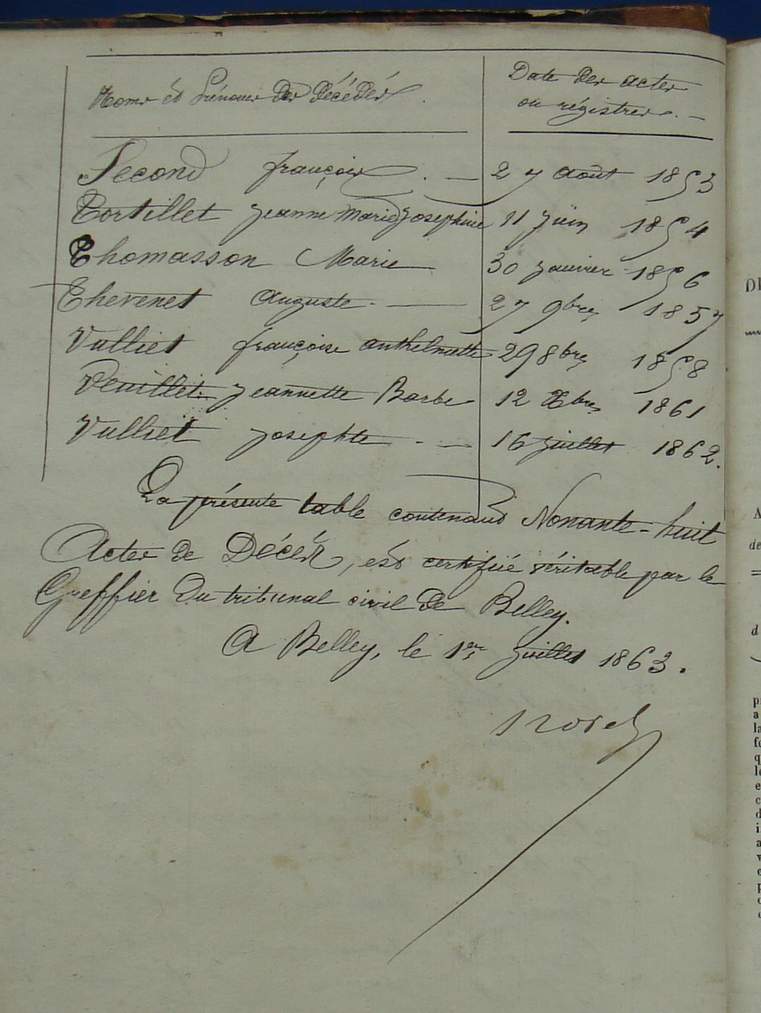 Noms et Prénoms des Décédés.
Date des actes
ou régistres. -
Second françois . — 27 août 1853
Tortillet Jeanne Marie Josephine 11 Juin 1854
Thomasson Marie 30 Janvier 1856
Thevenet Auguste. — 27 9bre 1857
Vulliet françoise anthelmette 29 8bre 1858
Veuillet Jeannette Barbe 12 Xbre 1861
Vulliet Josephte . — 16 Juillet 1862.
La présente table contenant Nonante-huit
Actes de Décès, est certifié véritable par le
Greffier du tribunal civil de Belley.
A Belley, le 1er Juillet 1863.